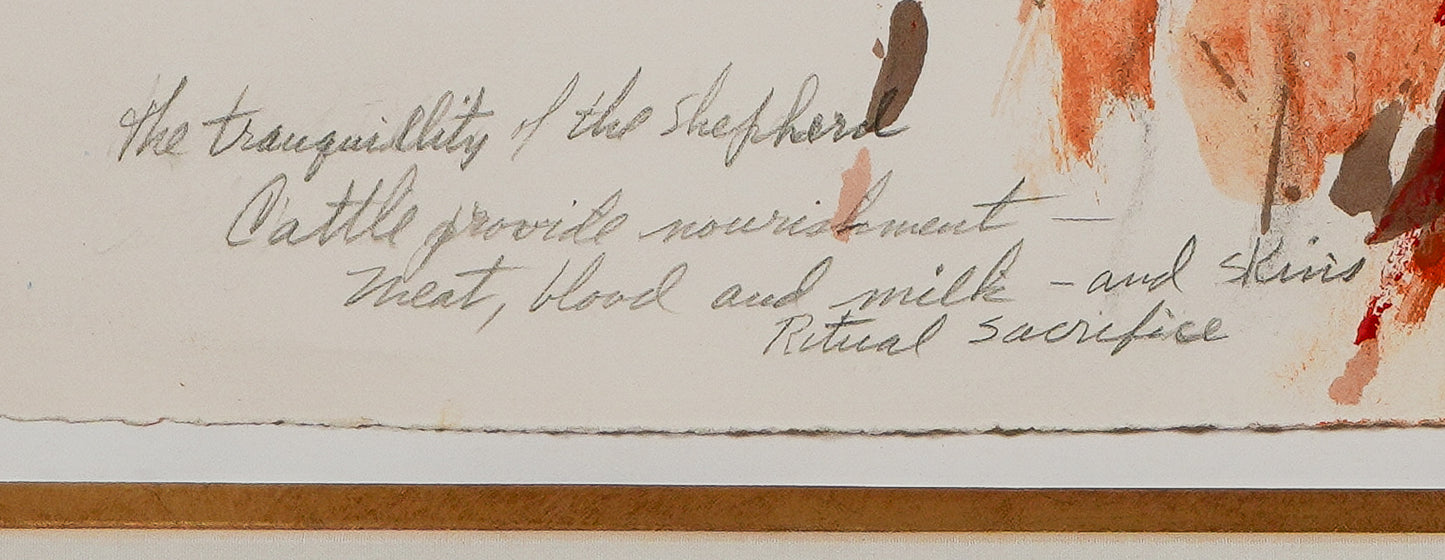 The tranquillity of the shepherd
Cattle provide nourishment —
Meat, blood and milk - and skins
Ritual sacrifice